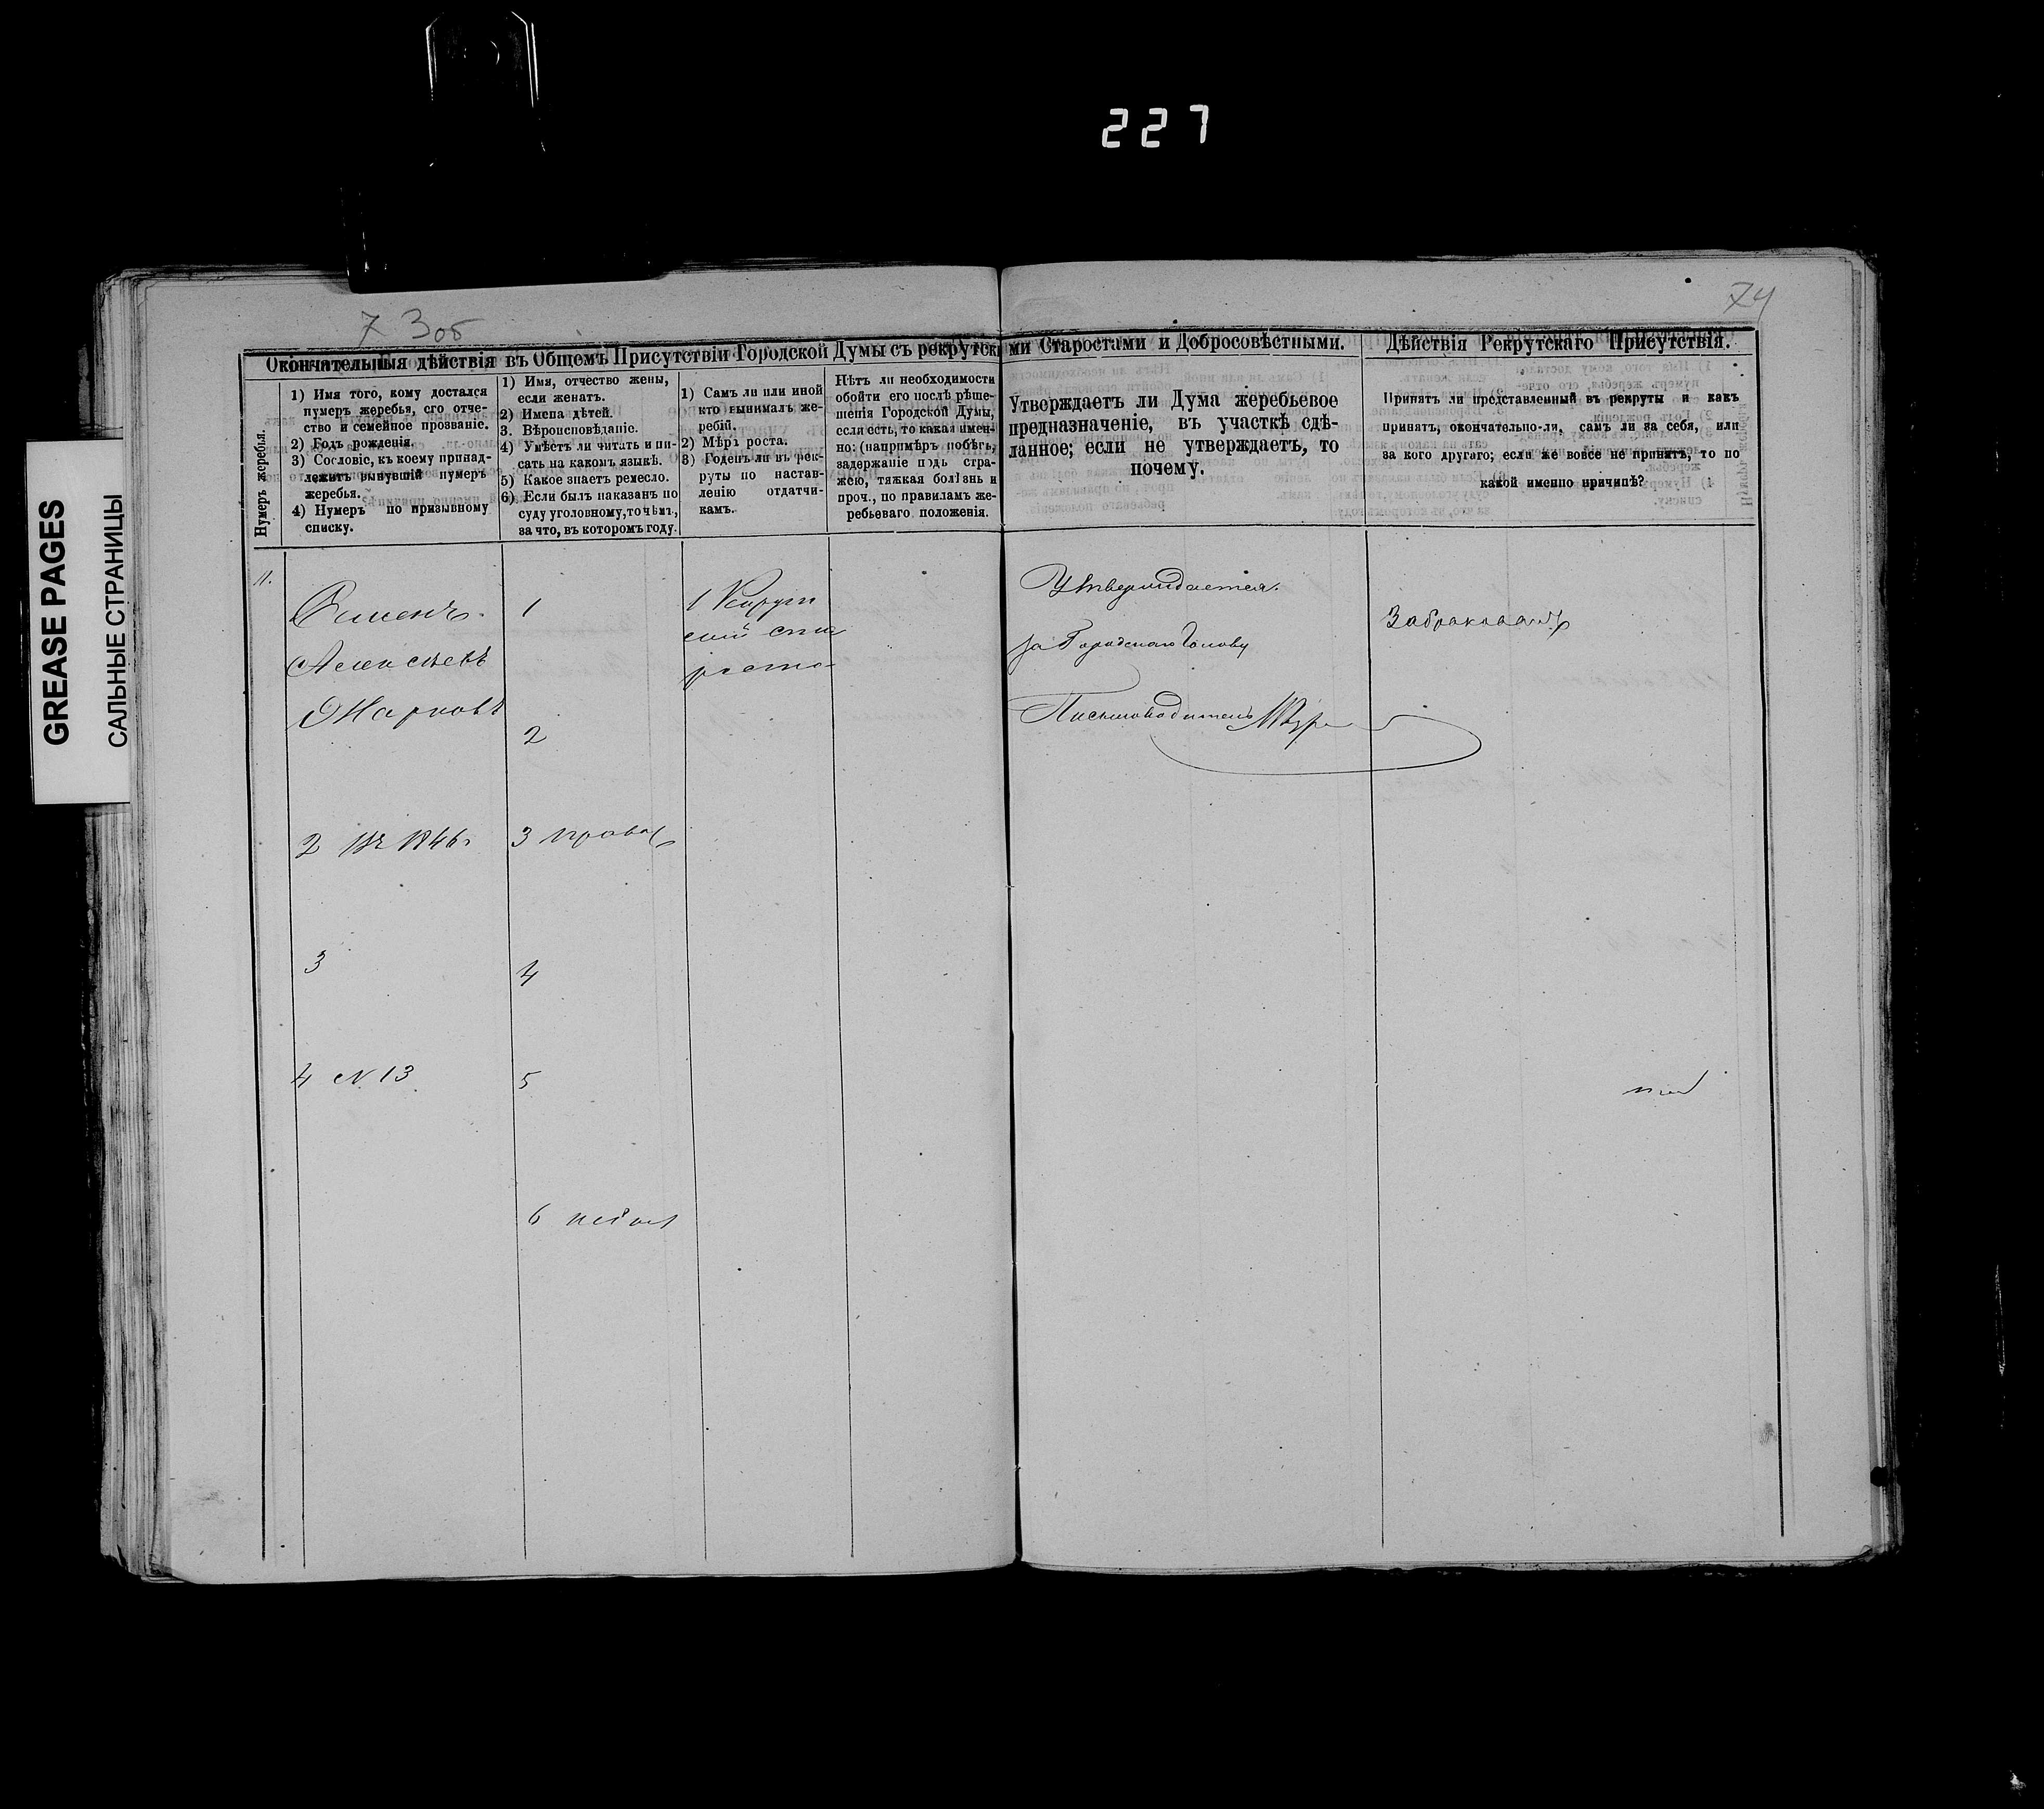 227
GREASE PAGES
САЛЬНЫЕ СТРАНИЦЫ
73об
74
Окончательныя дѣйствія въ Общемъ Присутствіи Городской Думы съ рекрутскими Старостами и Добросовѣстными.
Дѣйствія Рекрутскаго Присутствія.
Нумеръ жеребья.
1) Имя того, кому достался
нумеръ жеребья, его отче-
ство и семейное прозваніе.
2) Годъ рожденія.
3) Сословіе, къ коему принад-
лежитъ вынувшій нумеръ
жеребья.
4) Нумеръ по призывному
списку.
1) Имя, отчество жены,
если женатъ.
2) Имена дѣтей.
3. Вѣроисповѣданіе.
4) Умѣетъ ли читать и пи-
сать на какомъ языкѣ.
5) Какое знаетъ ремесло.
6) Если былъ наказанъ по
суду уголовному, то чѣмъ,
за что, въ которомъ году.
1) Самъ ли или иной
кто вынималъ же-
ребій.
2) Мѣръ роста.
3) Годенъ ли въ рек-
руты по настав-
ленію отдатчи-
камъ.
Нѣтъ ли необходимости
обойти его послѣ рѣше-
шенія Городской Думы,
если есть, то какая имен-
но: (напримѣръ побѣгъ,
задержаніе подъ стра-
жею, тяжкая болѣзнь и
проч., по правиламъ же-
ребьеваго положенія.
Утверждаетъ ли Дума жеребьевое
предназначеніе, въ участкѣ сдѣ-
ланное; если не утверждаетъ, то
почему.
Принятъ ли представленный въ рекруты и какъ
принятъ, окончательно-ли, самъ ли за себя, или
за кого другаго; если же вовсе не принятъ, то по
какой именно причинѣ?
11.
Семенъ
Алексѣевъ
Марковъ
2 Въ 1846 г
3
4 N 13
1
2
3 правос
4
5
6 небыл
1 Рекрут
ский ста
роста
Утверждается.
за Городскаго Голову
Письмоводитель
Забракованъ